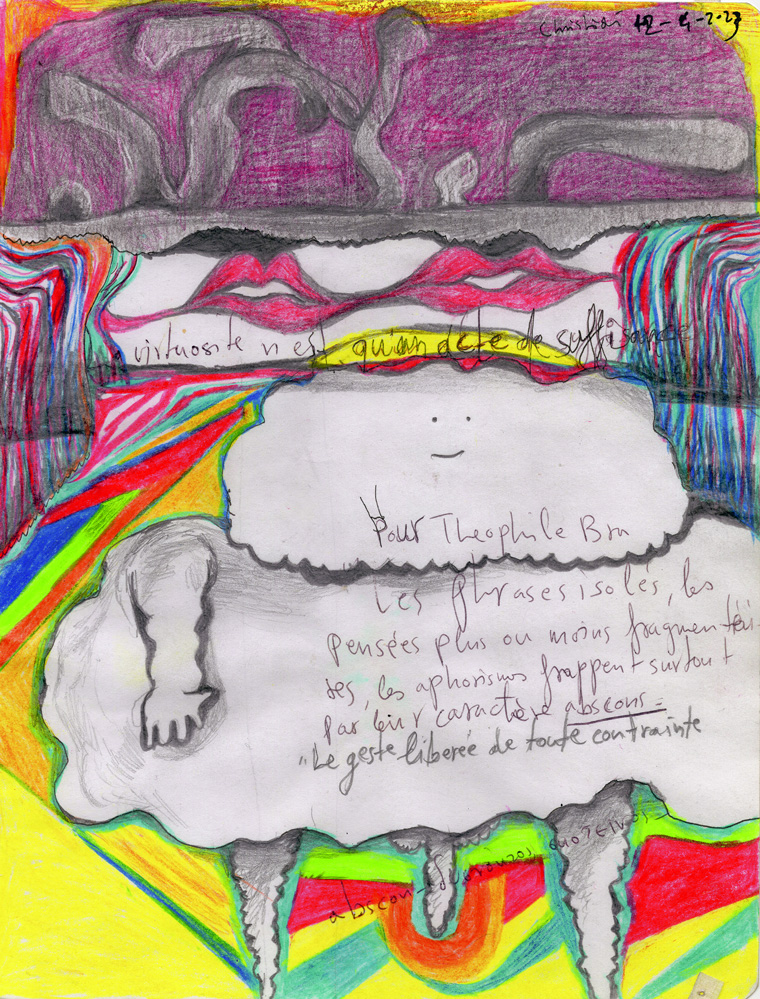 Christian 12-4-2023
virtuosite n'est qu'un délé de suffisance
Pour Theophile Bra
Les phrases isolés, les
pensées plus ou moins fragmentéri-
ses, les aphorismes frappent surtout
par leur caractère abscons =
"Le geste liberée de toute contrainte
abscon